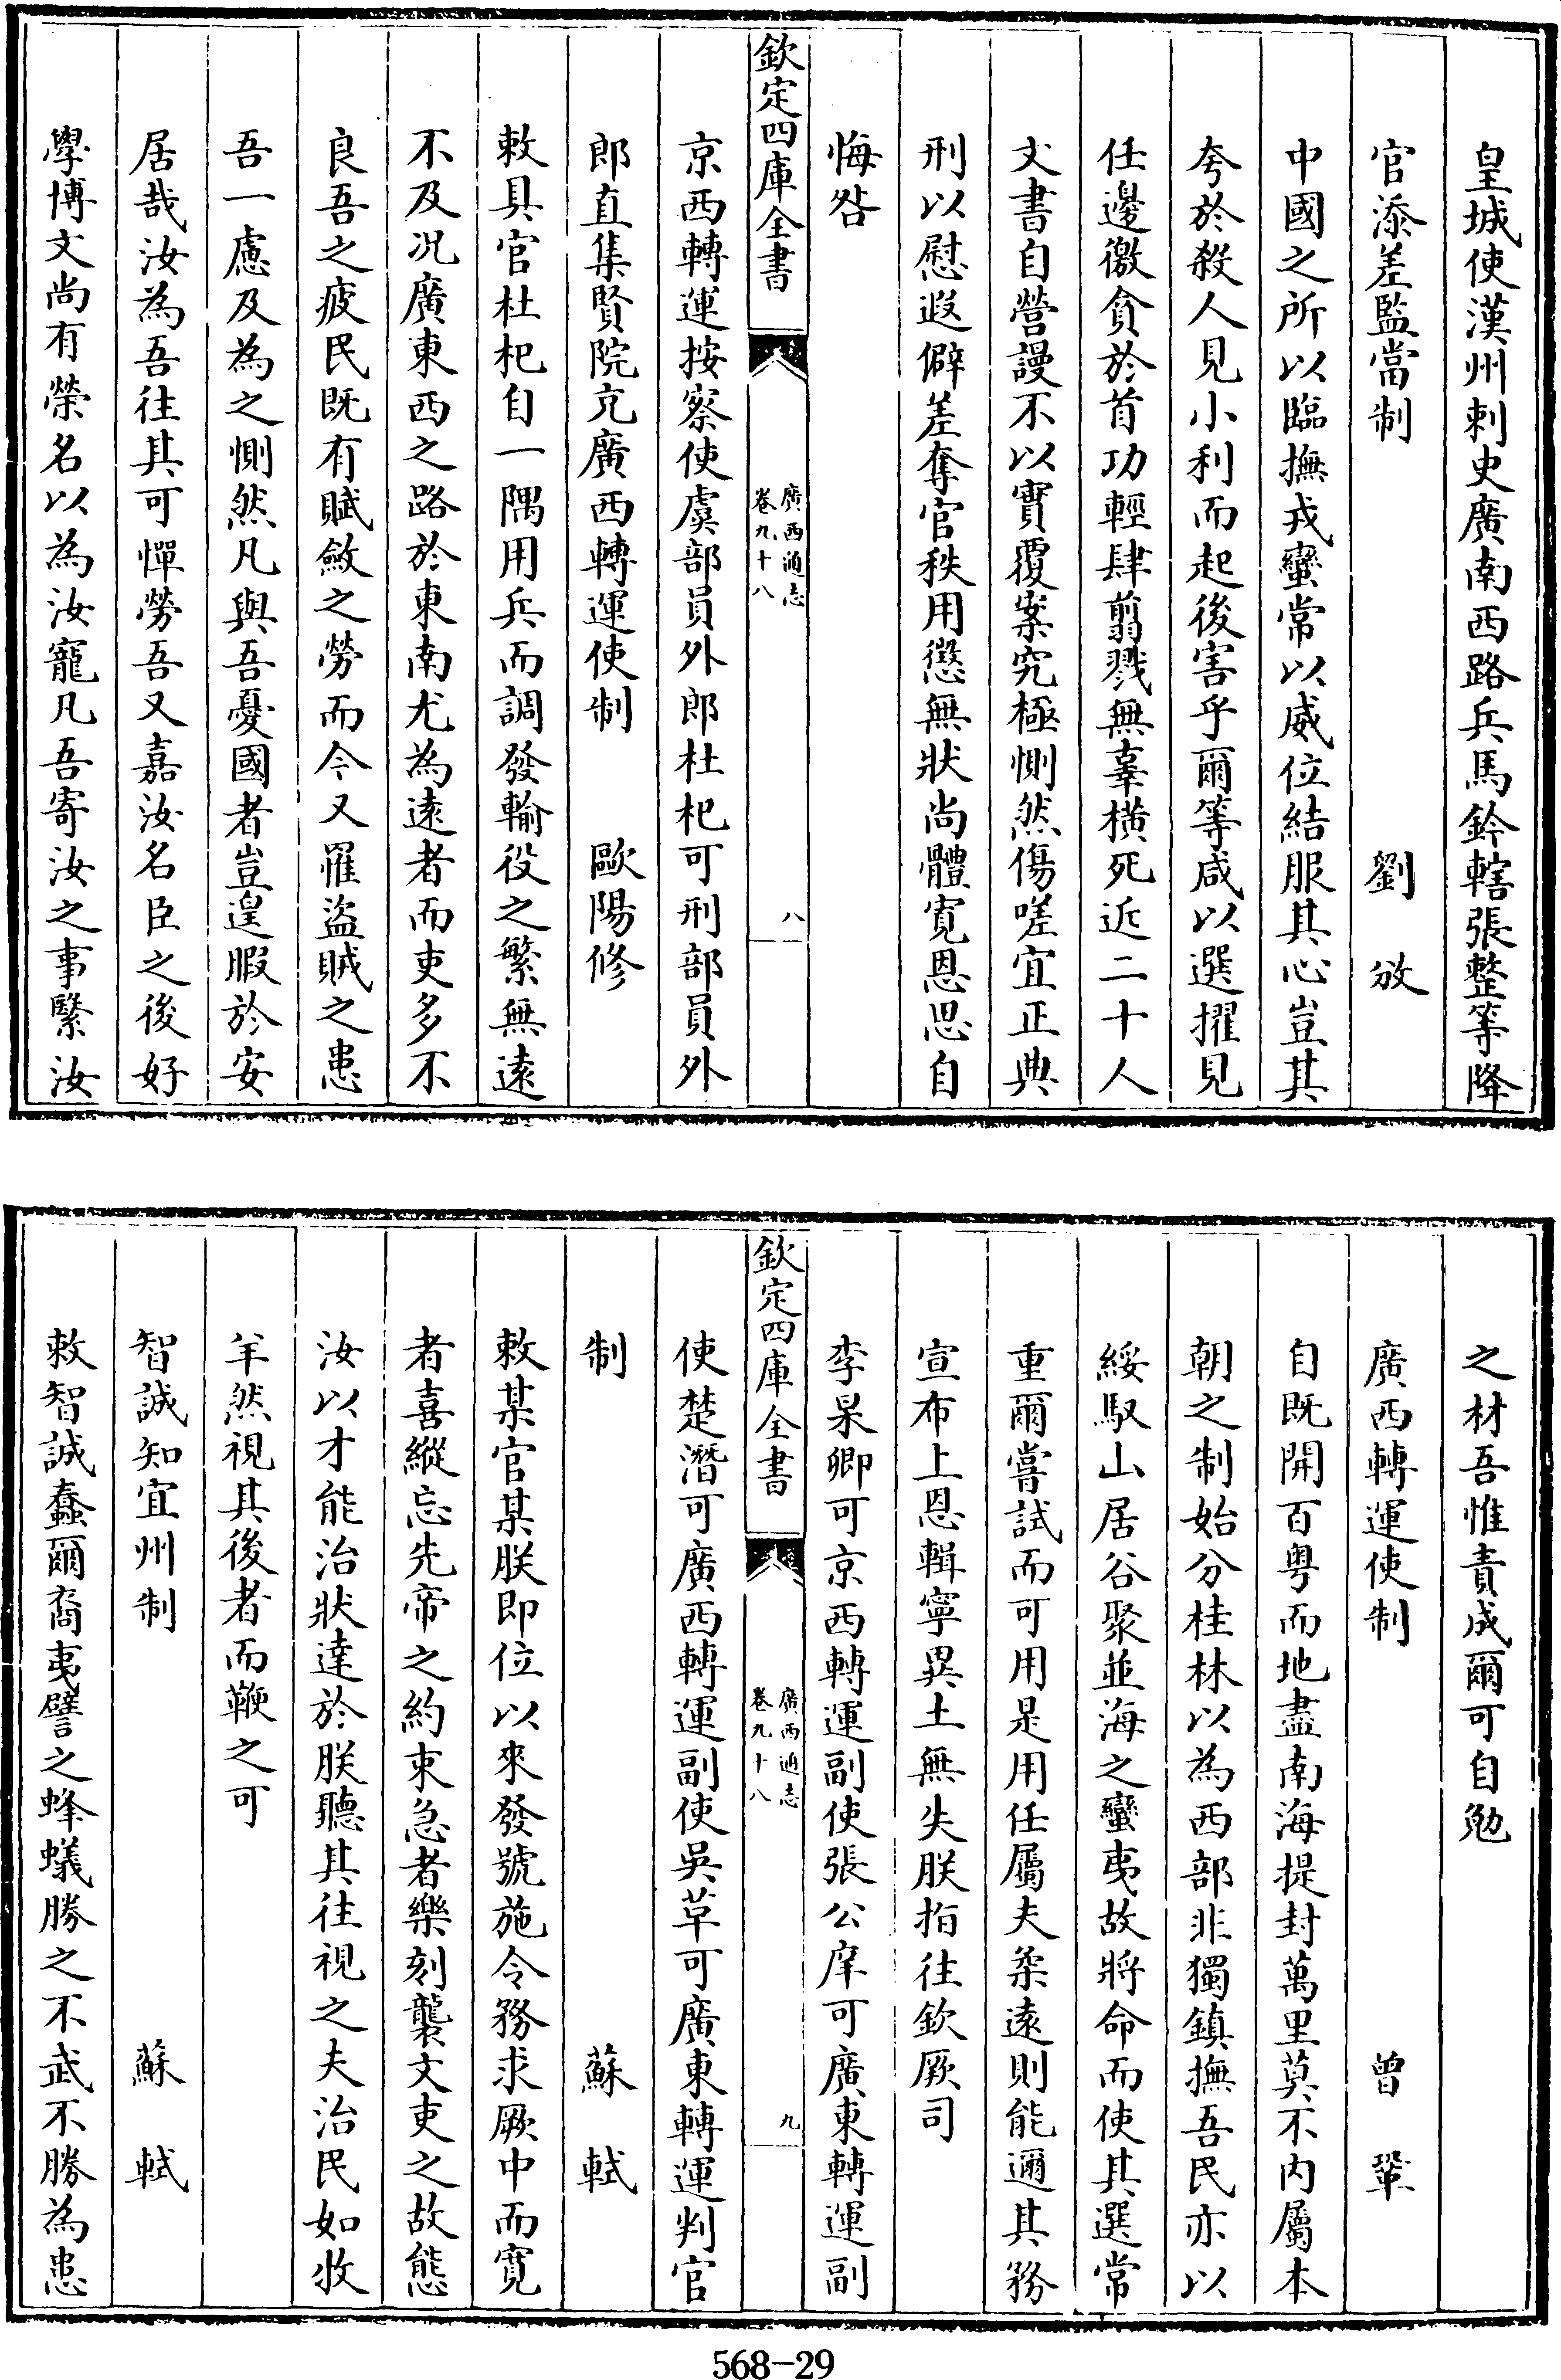 皇城使漢州刺史廣南西路兵馬鈐轄張整等降
官添差監當制　劉攽
中國之所以臨撫戎蠻常以威位結服其心豈其
夸於殺人見小利而起後害乎爾等咸以選擢見
任邊徼貪於首功輕肆翦戮無辜橫死近二十人
文書自營謾不以實覆案究極惻然傷嗟宜正典
刑以慰遐僻差奪官秩用懲無狀尚體寛恩思自
悔咎
欽定四庫全書　廣西通志　卷九十八　八
京西轉運按察使虞部員外郎杜杞可刑部員外
郎直集賢院充廣西轉運使制　歐陽修
敕具官杜杞自一隅用兵而調發輸役之繁無遠
不及況廣東西之路於東南尤為遠者而吏多不
良吾之疲民既有賦斂之勞而今又罹盜賊之患
吾一慮及為之惻然凡與吾憂國者豈遑暇於安
居哉汝為吾往其可憚勞吾又嘉汝名臣之後好
學博文尚有榮名以為汝寵凡吾寄汝之事繄汝
之材吾惟責成爾可自勉
廣西轉運使制　曾鞏
自既開百粤而地盡南海提封萬里莫不内屬本
朝之制始分桂林以為西部非獨鎮撫吾民亦以
綏馭山居谷聚並海之蠻夷故將命而使其選常
重爾嘗試而可用是用任屬夫柔遠則能邇其務
宣布上恩輯寧異土無失朕指往欽厥司
李杲卿可京西轉運副使張公庠可廣東轉運副
欽定四庫全書　廣西通志　卷九十八　九
使楚潛可廣西轉運副使吳革可廣東轉運判官
制　蘇軾
敕某官某朕即位以來發號施令務求厥中而寛
者喜縱忘先帝之約束急者樂刻襲文吏之故態
汝以才能治狀達於朕聽其往視之夫治民如牧
羊然視其後者而鞭之可
智誠知宜州制　蘇軾
敕智誠蠢爾裔夷譬之蜂蟻勝之不武不勝為患
568-29